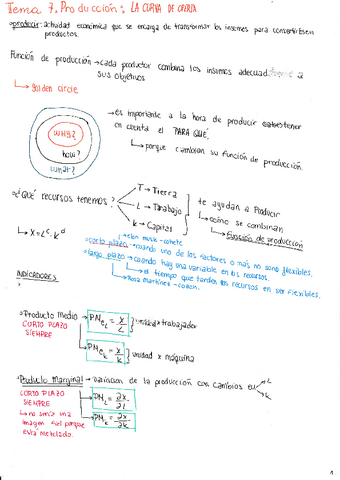 Tema 7. Producción: LA CURVA DE OFERTA
producir: actividad económica que se encarga de transformar los insumos para convertirlos en
productos.
Función de producción → cada productor combina los insumos adecuad a
sus objetivos
↳ golden circle
WHY?
how?
what?
→ es importante a la hora de producir tener
en cuenta el PARA QUÉ.
↳ porque cambian su función de producción.
¿QUÉ recursos tenemos?
T → Tierra
L → Tarabajo
K → Capital
te ayudan a Producir
↳ como se combinan
↳ función de producción
↳ X = L^α · K^α
→ elon musk - cohete
corto plazo → cuando uno de los factores o más no son flexibles.
largo plazo → cuando hay una variable en los recursos.
↳ el tiempo que tardan los recursos en ser flexibles.
↳ Rosa Martínez - coach.
INDICADORES
Producto Medio → PMeL = X/L } unidad x trabajador
CORTO PLAZO
SIEMPRE
PMeK = X/K } unidad x máquina
Producto Marginal → variación de la producción con cambios en L
K
CORTO PLAZO
SIEMPRE
PML = ∂X/∂L
PMK = ∂X/∂K
↳ no sería una
imagen fiel porque
está mezclado.
1